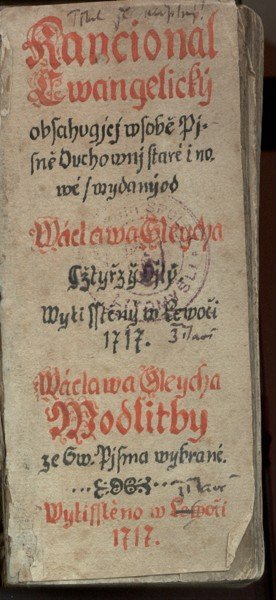 Kancional
Ewangelický
obsahugjcý w sobě Pj-
sně Duchownj staré i no-
wé / wydaný od
Wáclawa Gleycha
Cztyrzy Djly
Wytisstěný w Lewoči
1717.
Wáclawa Gleycha
Modlitby
ze Sw. Pjsma wybrané.
Wytisstěno w Lewoči
1717.